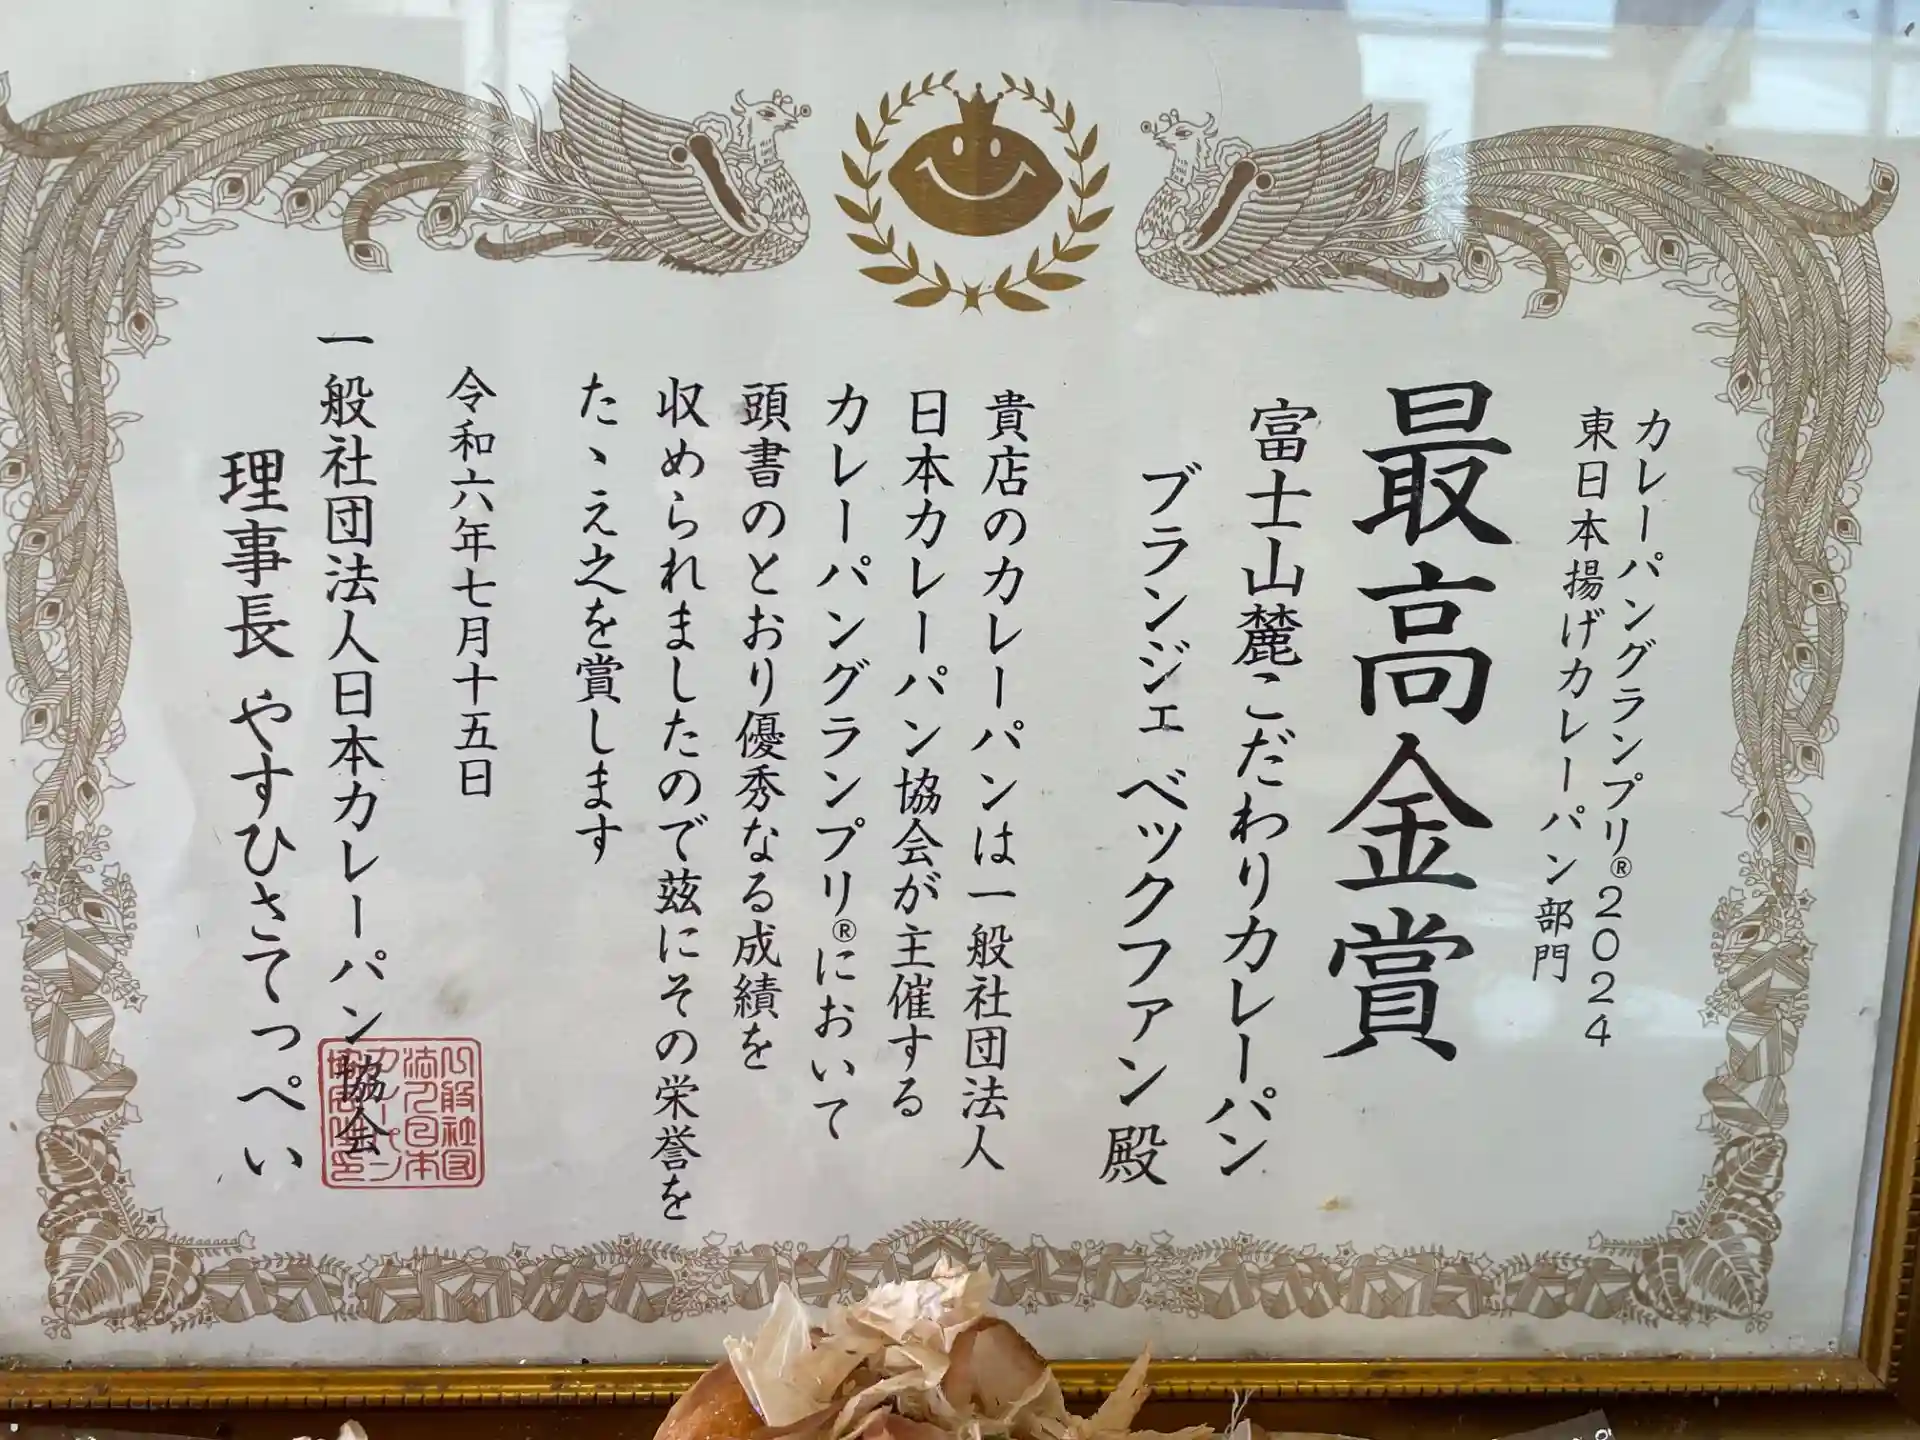 カレーパングランプリ®2024
東日本揚げカレーパン部門
最高金賞
富士山麓こだわりカレーパン
ブランジェ ベックファン 殿
貴店のカレーパンは一般社団法人
日本カレーパン協会が主催する
カレーパングランプリ®において
頭書のとおり優秀なる成績を
収められましたので茲にその栄誉を
たゝえ之を賞します
令和六年七月十五日
一般社団法人日本カレーパン協会
理事長 やすひさてっぺい